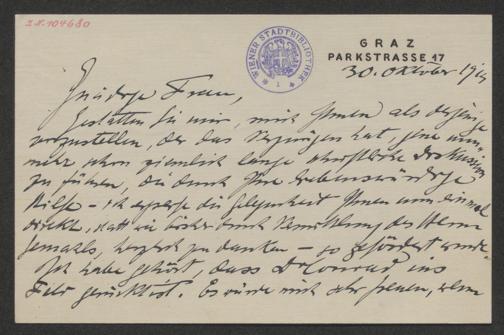 I.N. 104680
WIENER STADTBIBLIOTHEK
1
GRAZ
PARKSTRASSE 17
30. Oktober 19
Gnädige Frau,
Gestatten Sie mir, mich Ihnen als derjenige
vorzustellen, der das Vergnügen hat, jene nun-
mehr schon ziemlich lange Diskussion
zu führen, die durch Ihre liebenswürdige
Hilfe - ich ergreife die Gelegenheit Ihnen nun einmal
direkte, statt wie bisher durch Vermittlung des Herrn
Gemahls, herzlich zu danken - so gefördert wurde.
Ich habe gehört, dass Dr Conrad, ins
Feld gerückt ist. Es würde mich sehr freuen, wenn